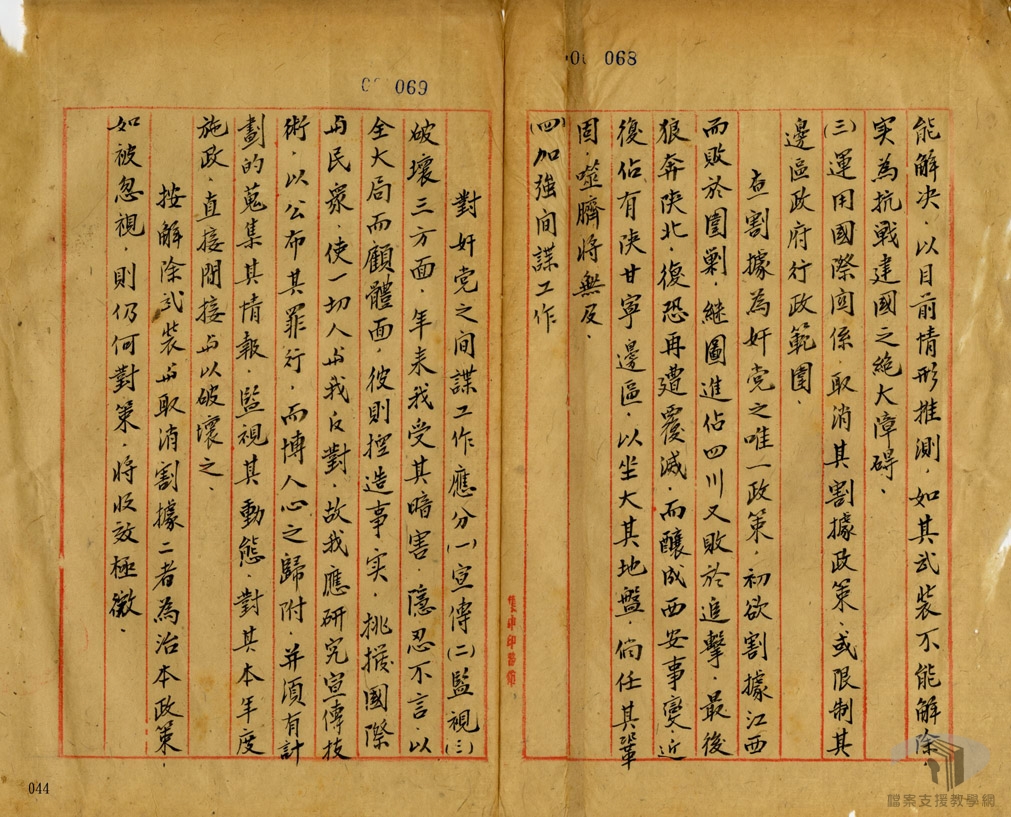 068
能解決，以目前情形推測，如其武裝不能解除
实為抗戰建國之絕大障碍、
(三)運用國際関係取消其割據政策、或限制其
邊區政府行政範圍、
查割據為奸党之唯一政策，初欲割據江西
而敗於圍剿，継圖進佔四川又敗於追擊，最後
狼奔陝北復恐再遭覆滅，而釀成西安事變，近
復佔有陝甘寧邊區，以坐大其地盤，倘任其鞏
固，噬臍將無及、
(四)加強间諜工作
069
對奸党之间諜工作應分(一)宣傳(二)監視(三)
破壞三方面，年来我受其暗害，隱忍不言，以
全大局而顧體面，彼則控造事实，挑撥國際
与民衆，使一切人与我反對，故我應研究宣傳技
術，以公布其罪行，而博人心之歸附，并須有計
劃的蒐集其情報，監視其動態，對其本年度
施政，直接間接与以破壞之、
按解除武装与取消割據二者為治本政策，
如被忽視，則仍何對策，將收效極微、
044
檔案支援教學網